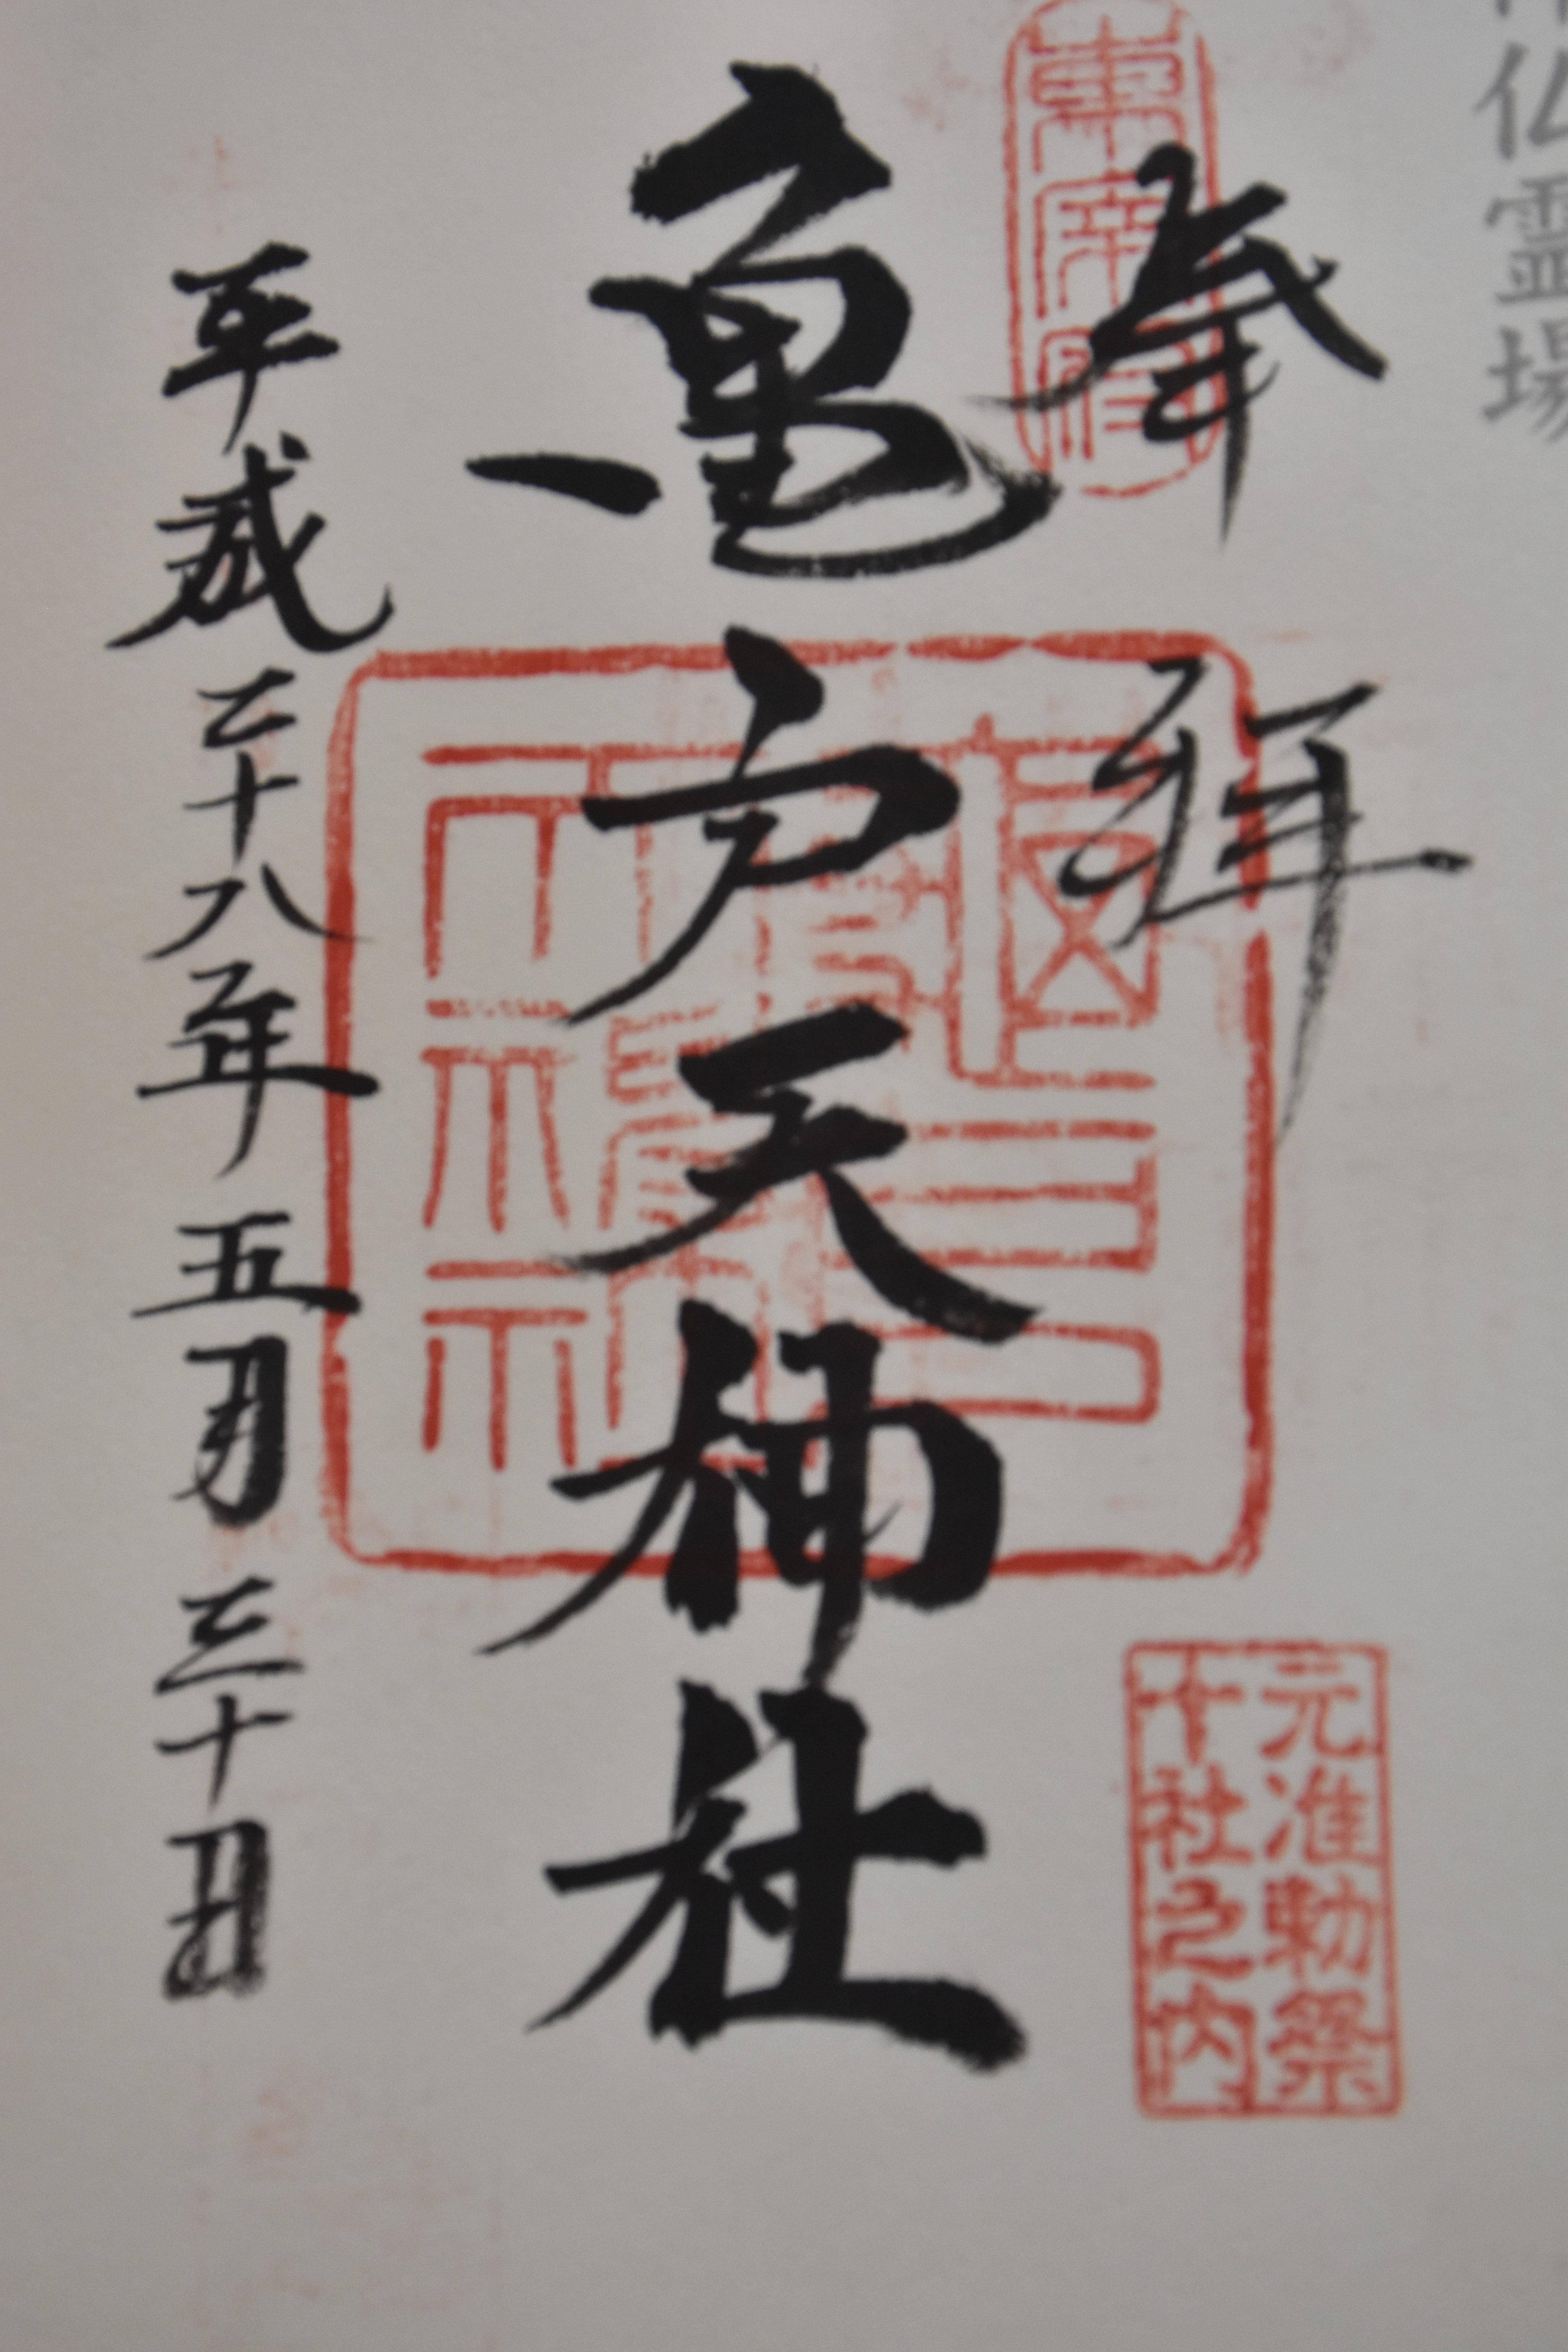 仏霊場
奉拝
東宰府
亀戸天神社
元准勅祭
十社之内
平成二十八年五月三十日